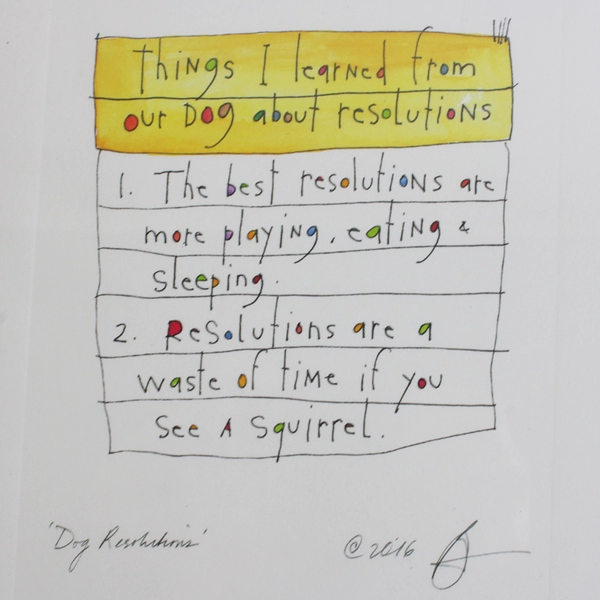 Things I learned from
our Dog about resolutions
1. The best resolutions are
more playing, eating &
sleeping.
2. Resolutions are a
waste of time if you
see a squirrel.
'Dog Resolutions'
©2016